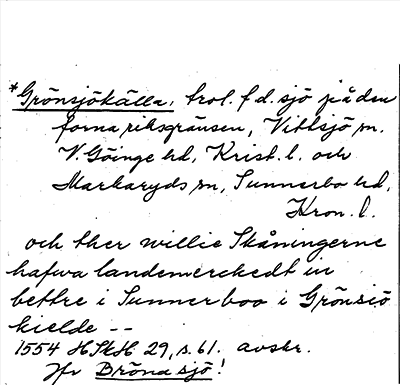 *Grönsjökälla, trol. f d. sjö på den
forna riksgränsen, Vittsjö sn,
V. Göinge hd, Krist. l. och
Markaryds sn, Sunnerbo hd,
Kron. l.
och ther willie Skåningerne
hafwa landemerckedt in
bettre i Sunnerboo i Grönsiö
kielde --
1554 HSkH 29, s. 61. avskr.
Jfr Bröna sjö!